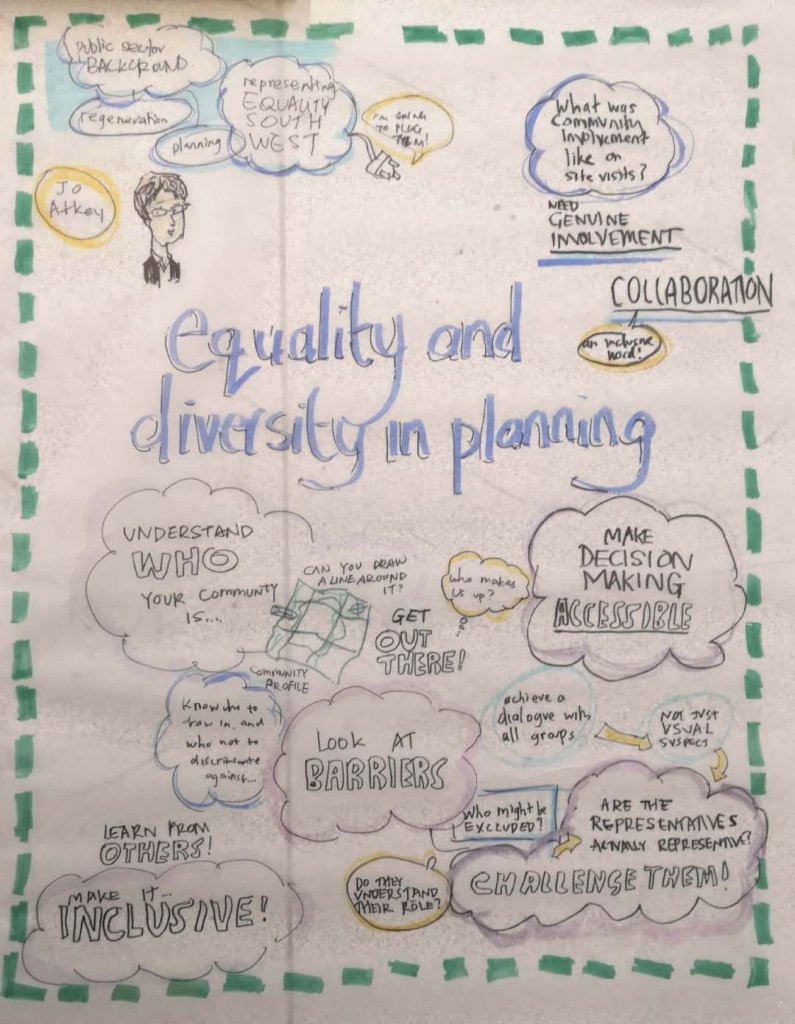 public sector
BACKGROUND.
regeneration
planning
representing
EQUALITY
SOUTH
WEST
I'm GOING
TO PLUG
THEM!
Jo
Atkey
What was
community
involvement
like on
site visits?
NEED
GENUINE
INVOLVEMENT
COLLABORATION
an inclusive
word!
equality and
diversity in planning
UNDERSTAND
WHO
YOUR COMMUNITY
IS...
CAN YOU DRAW
A LINE AROUND
IT?
COMMUNITY
PROFILE
GET
OUT
THERE!
who makes
us up?
MAKE
DECISION
MAKING
ACCESSIBLE
Know who to
draw in, and
who not to
discriminate
against...
Look AT
BARRIERS
achieve a
dialogue with
all groups
NOT JUST
USUAL
SUSPECT
Who might be
EXCLUDED?
ARE THE
REPRESENTATIVES
ACTUALLY REPRESENTIVE?
CHALLENGE THEM!
DO THEY
UNDERSTAND
THEIR RÔLE?
LEARN FROM
OTHERS!
MAKE IT...
INCLUSIVE!